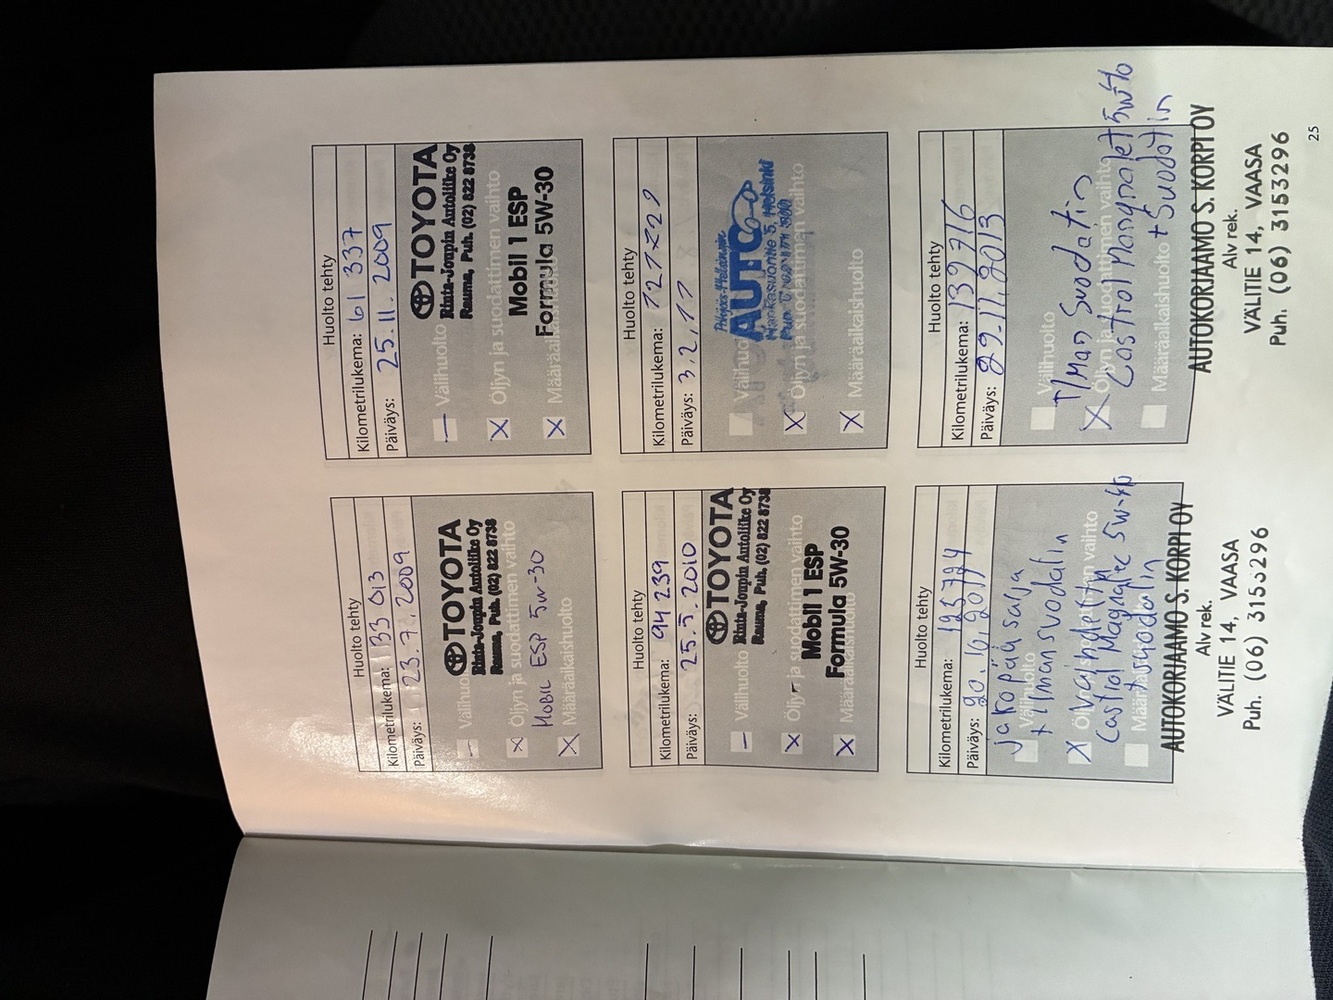 Huolto tehty
Kilometrilukema: 33 013
Päiväys: 23.7.2009
Välihuolto
TOYOTA
Rinta-Jouppin Autoliike Oy
Rauma, Puh. (02) 822 8738
Öljyn ja suodattimen vaihto
MOBIL ESP 5W-30
Määräaikaishuolto
Huolto tehty
Kilometrilukema: 61 337
Päiväys: 25.11.2009
TOYOTA
Rinta-Jouppin Autoliike Oy
Rauma, Puh. (02) 822 8738
Välihuolto
Öljyn ja suodattimen vaihto
Mobil 1 ESP
Formula 5W-30
Määräaikaishuolto
Huolto tehty
Kilometrilukema: 94 239
Päiväys: 25.5.2010
TOYOTA
Rinta-Jouppin Autoliike Oy
Rauma, Puh. (02) 822 8738
Välihuolto
Öljyn ja suodattimen vaihto
Mobil 1 ESP
Formula 5W-30
Määräaikaishuolto
Huolto tehty
Kilometrilukema:
Päiväys: 3.2.11
AUTO
Mankasuontie 5, Helsinki
Välihuolto
Öljyn ja suodattimen vaihto
Määräaikaishuolto
Huolto tehty
Kilometrilukema:
Päiväys:
jakopään sarja
+ ilmansuodatin
Välihuolto
vaihto
Castrol Magnatec 5W-40
+ suodatin
AUTOKORJAAMO S. KORPI OY
Alv rek.
VÄLITIE 14, VAASA
Puh. (06) 3153296
Huolto tehty
Kilometrilukema: 139716
Päiväys: 29.11.2013
Välihuolto
Ilman Suodatin
Öljyn ja suodattimen vaihto
Castrol 5W40
Määräaikaishuolto
+ Suodatin
AUTOKORJAAMO S. KORPI OY
Alv rek.
VÄLITIE 14, VAASA
Puh. (06) 3153296
25